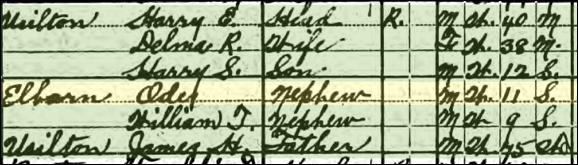 Usilton Harry E. Head R. M W. 40 M
Delma R. Wife F W. 38 M.
Harry S. Son M W. 12 S.
Elbarn Odes Nephew M W. 11 S.
William T. Nephew M W. 9 S.
Usilton James H. Father M W. 75